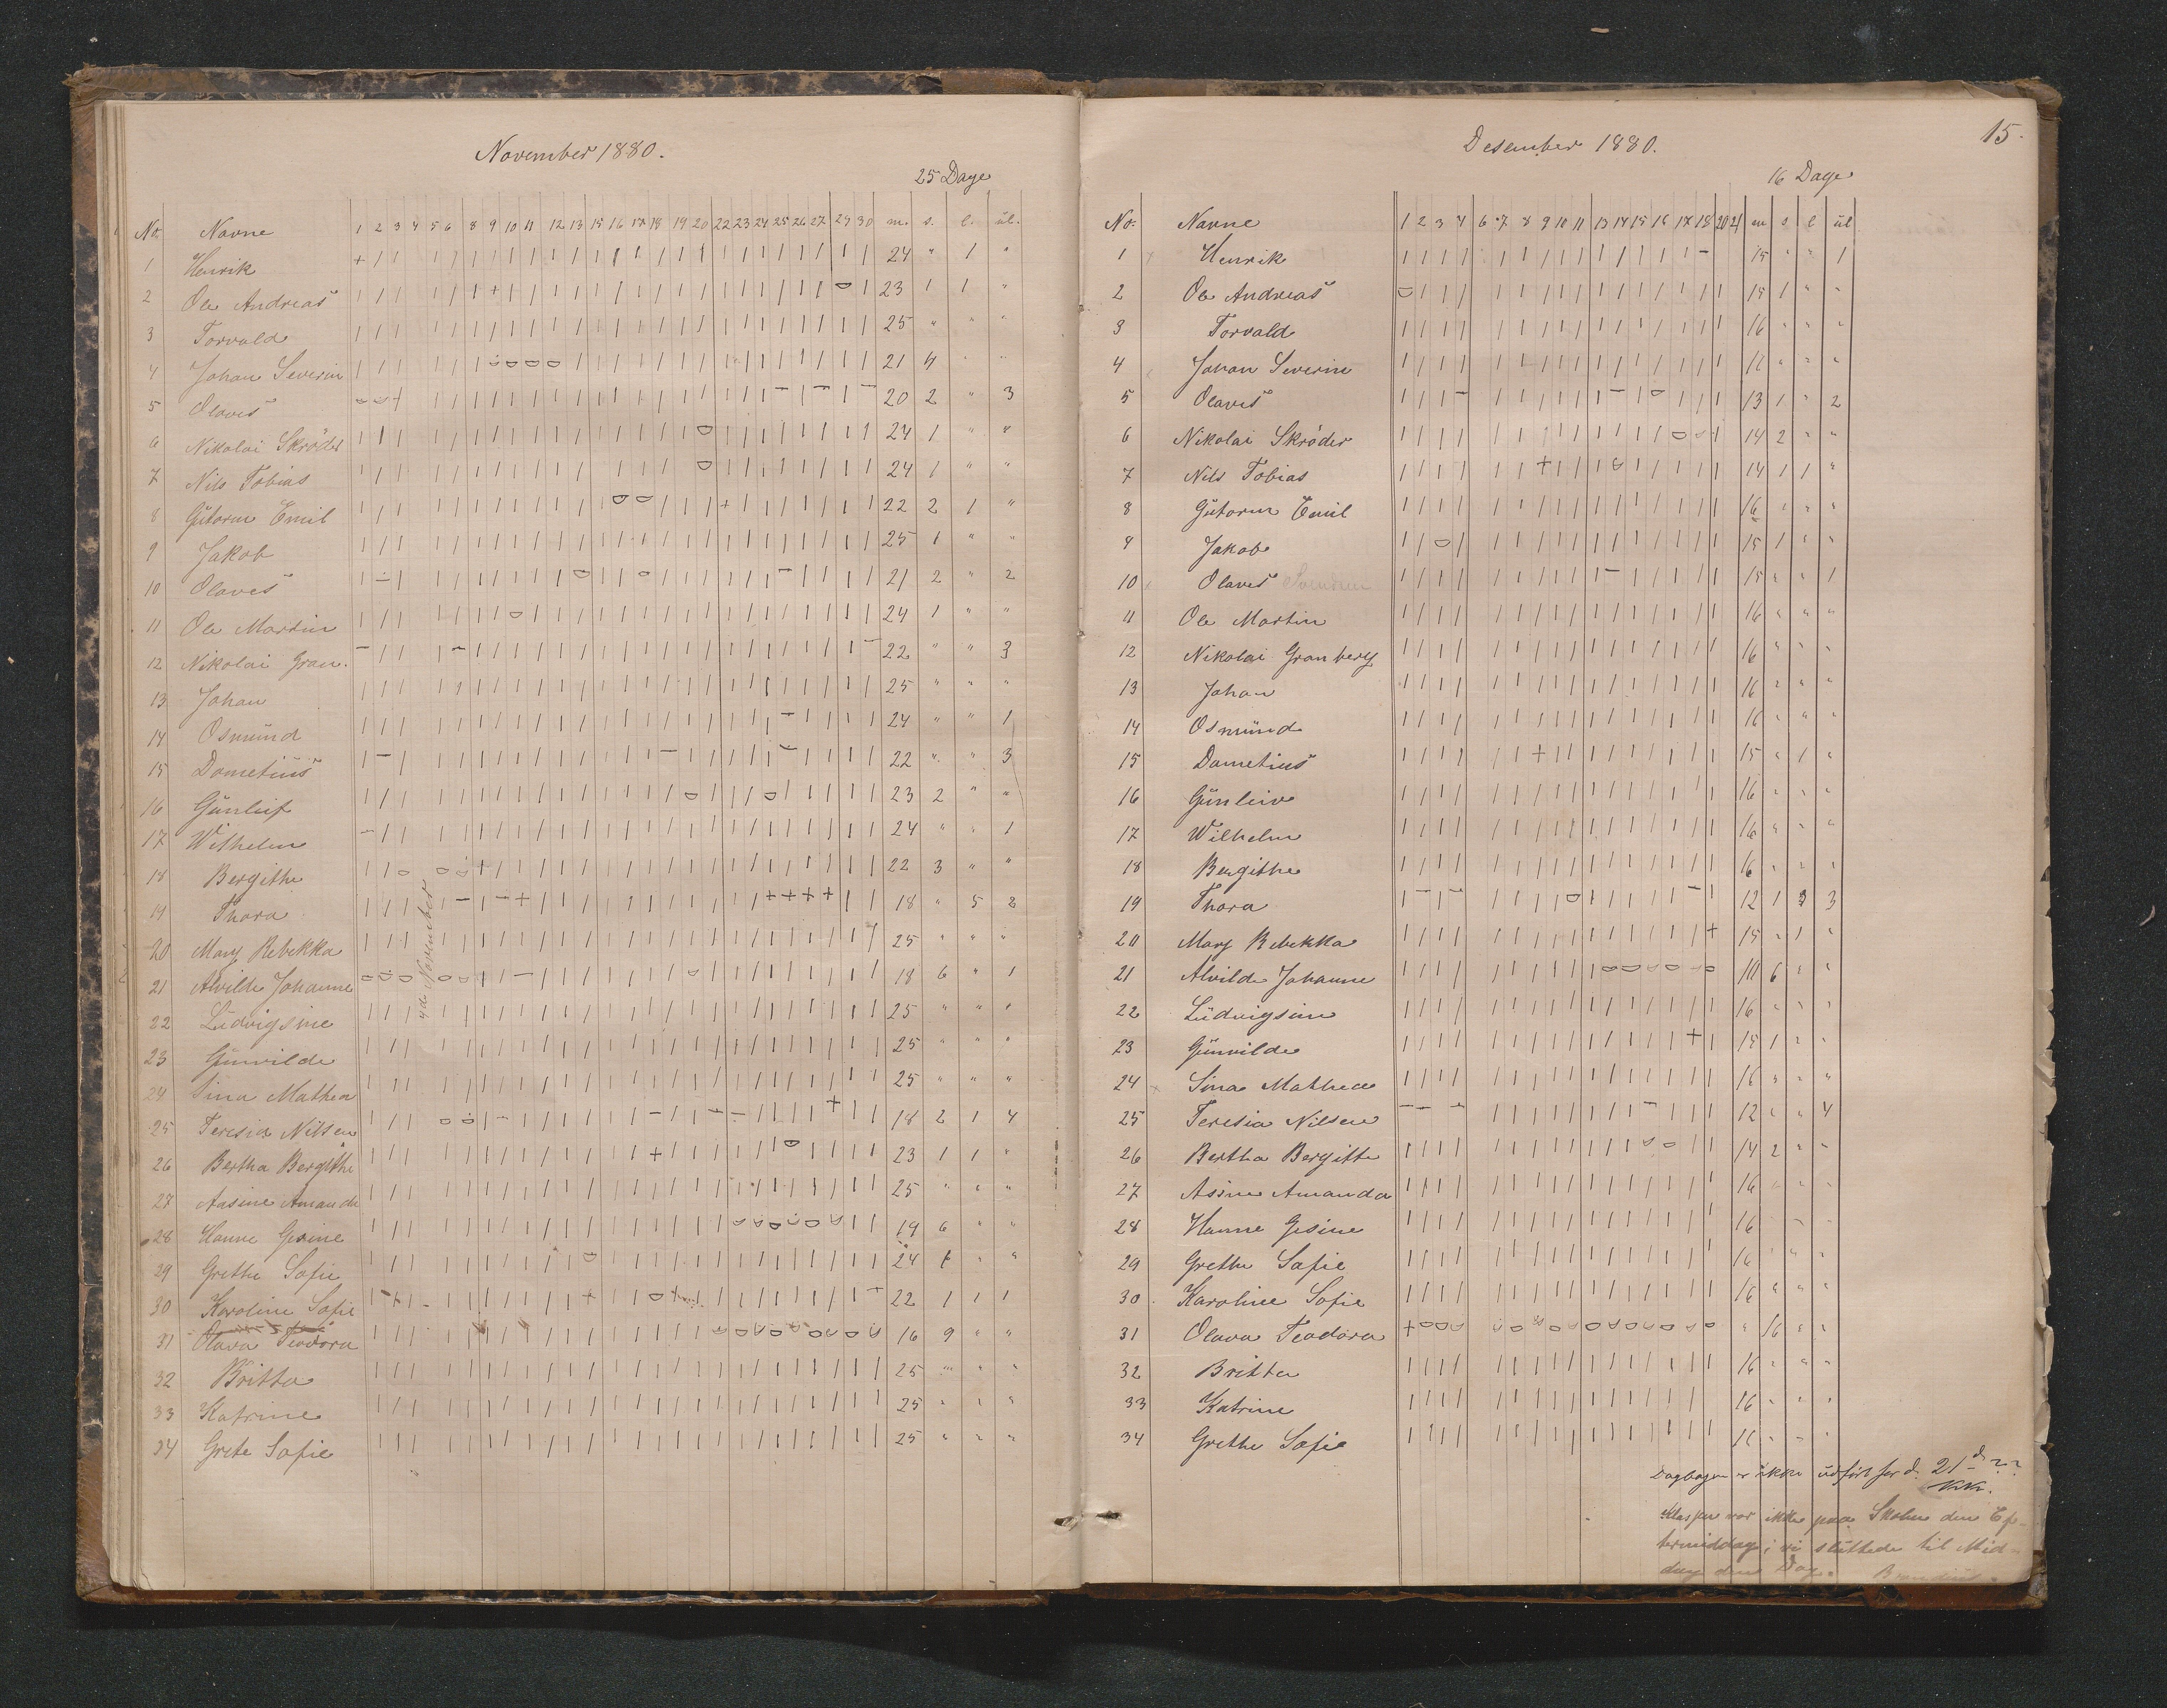 November 1880.
25 Dage
No. Navne 1 2 3 4 5 6 8 9 10 11 12 13 15 16 17 18 19 20 22 23 24 25 26 27 29 30 m. s. l. ul.
1 Henrik 24 " 1 "
2 Ole Andreas 23 1 1 "
3 Torvald 25 " " "
4 Johan Severin 21 4 " "
5 Olaves 20 2 " 3
6 Nikolai Skrøder 24 1 " "
7 Nils Tobias 24 1 " "
8 Gutorm Emil 22 2 1 "
9 Jakob 25 1 " "
10 Olaves 21 2 " 2
11 Ole Martin 24 1 " "
12 Nikolai Gran. 22 " " 3
13 Johan 25 " " "
14 Osmund 24 " " 1
15 Dometius 22 " " 3
16 Gunleif 23 2 " "
17 Wilhelm 24 " " 1
18 Bergithe 22 3 " "
19 Thora 18 " 5 2
20 Mary Rebekka 25 " " "
21 Alvilde Johanne 18 6 " 1
22 Ludvigsine 25 " " "
23 Gunvilde 25 " " "
24 Sina Mathea 25 " " "
25 Teresia Nilsen 18 2 1 4
26 Bertha Bergithe 23 1 1 "
27 Aasine Amanda 25 " " "
28 Hanne Gesine 19 6 " "
29 Grethe Sofie 24 1 " "
30 Karoline Sofie 22 1 1 1
31 Olava Teodora 16 9 " "
32 Britta 25 " " "
33 Katrine 25 " " "
34 Grete Sofie 25 " " "
4de November
15.
Desember 1880.
16 Dage
No: Navne 1 2 3 4 6 7 8 9 10 11 13 14 15 16 17 18 20 21 m s l ul
1 Henrik 15 " " 1
2 Ole Andreas 15 1 " "
3 Torvald 16 " " "
4 Johan Severin 16 " " "
5 Olaves 13 1 " 2
6 Nikolai Skrøder 14 2 " "
7 Nils Tobias 14 1 1 "
8 Gutorm Emil 16 " " "
9 Jakob 15 1 " "
10 Olaves 15 " " 1
11 Ole Martin 16 " " "
12 Nikolai Granberg 16 " " "
13 Johan 16 " " "
14 Osmund 16 " " "
15 Dometius 15 " 1 "
16 Gunleiv 16 " " "
17 Wilhelm 16 " " "
18 Bergithe 16 " " "
19 Thora 12 1 3
20 Mary Rebekka 15 " 1 "
21 Alvilde Johanne 10 6 " "
22 Ludvigsine 16 " " "
23 Gunvilde 15 1 " "
24 Sina Mathea 16 " " "
25 Teresia Nilsen 12 " " 4
26 Bertha Bergitte 14 2 " "
27 Asine Amanda 16 " " "
28 Hanne Gesine 16 " " "
29 Grethe Sofie 16 " " "
30 Karoline Sofie 16 " " "
31 Olava Teodora " 16 " "
32 Britta 16 " " "
33 Katrine 16 " " "
34 Grethe Sofie 16 " " "
Dagbogen er ikke udført for d. 21d ??
Klassen var ikke paa Skolen den Ef-
termiddag; vi sluttede til Mid-
dag den Dag.